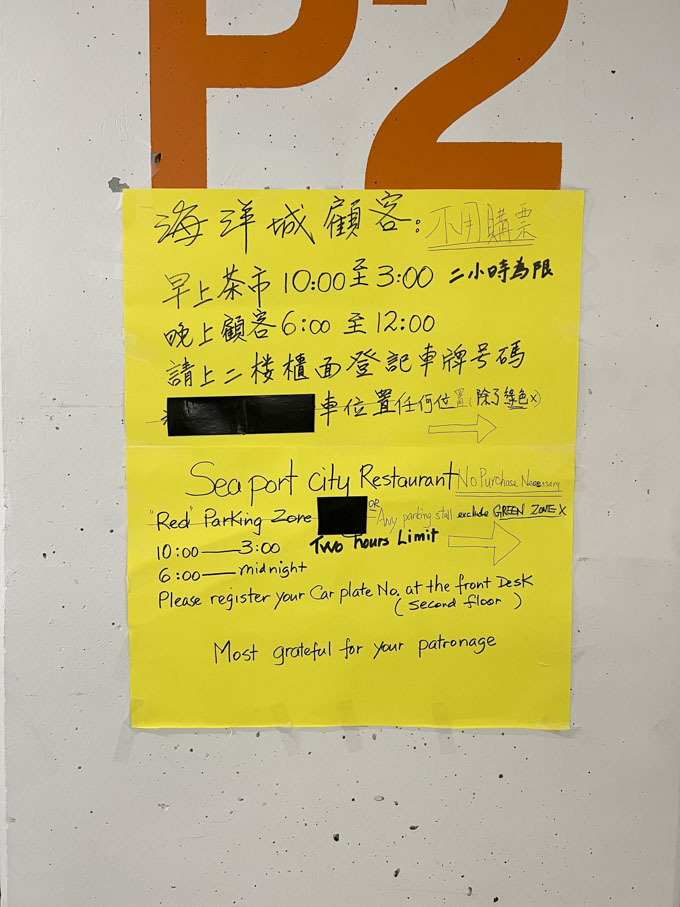 P2
海洋城顧客: 不用購票
早上茶市 10:00 至 3:00 二小時為限
晚上顧客 6:00 至 12:00
請上二楼櫃面登記車牌号码
車位置任何位置(除了綠色X)
Seaport city Restaurant No Purchase Necessary
"Red" Parking Zone OR Any parking stall exclude GREEN ZONE X
10:00 — 3:00 Two hours Limit
6:00 — midnight
Please register your Car plate No. at the front Desk
(second floor)
Most grateful for your patronage